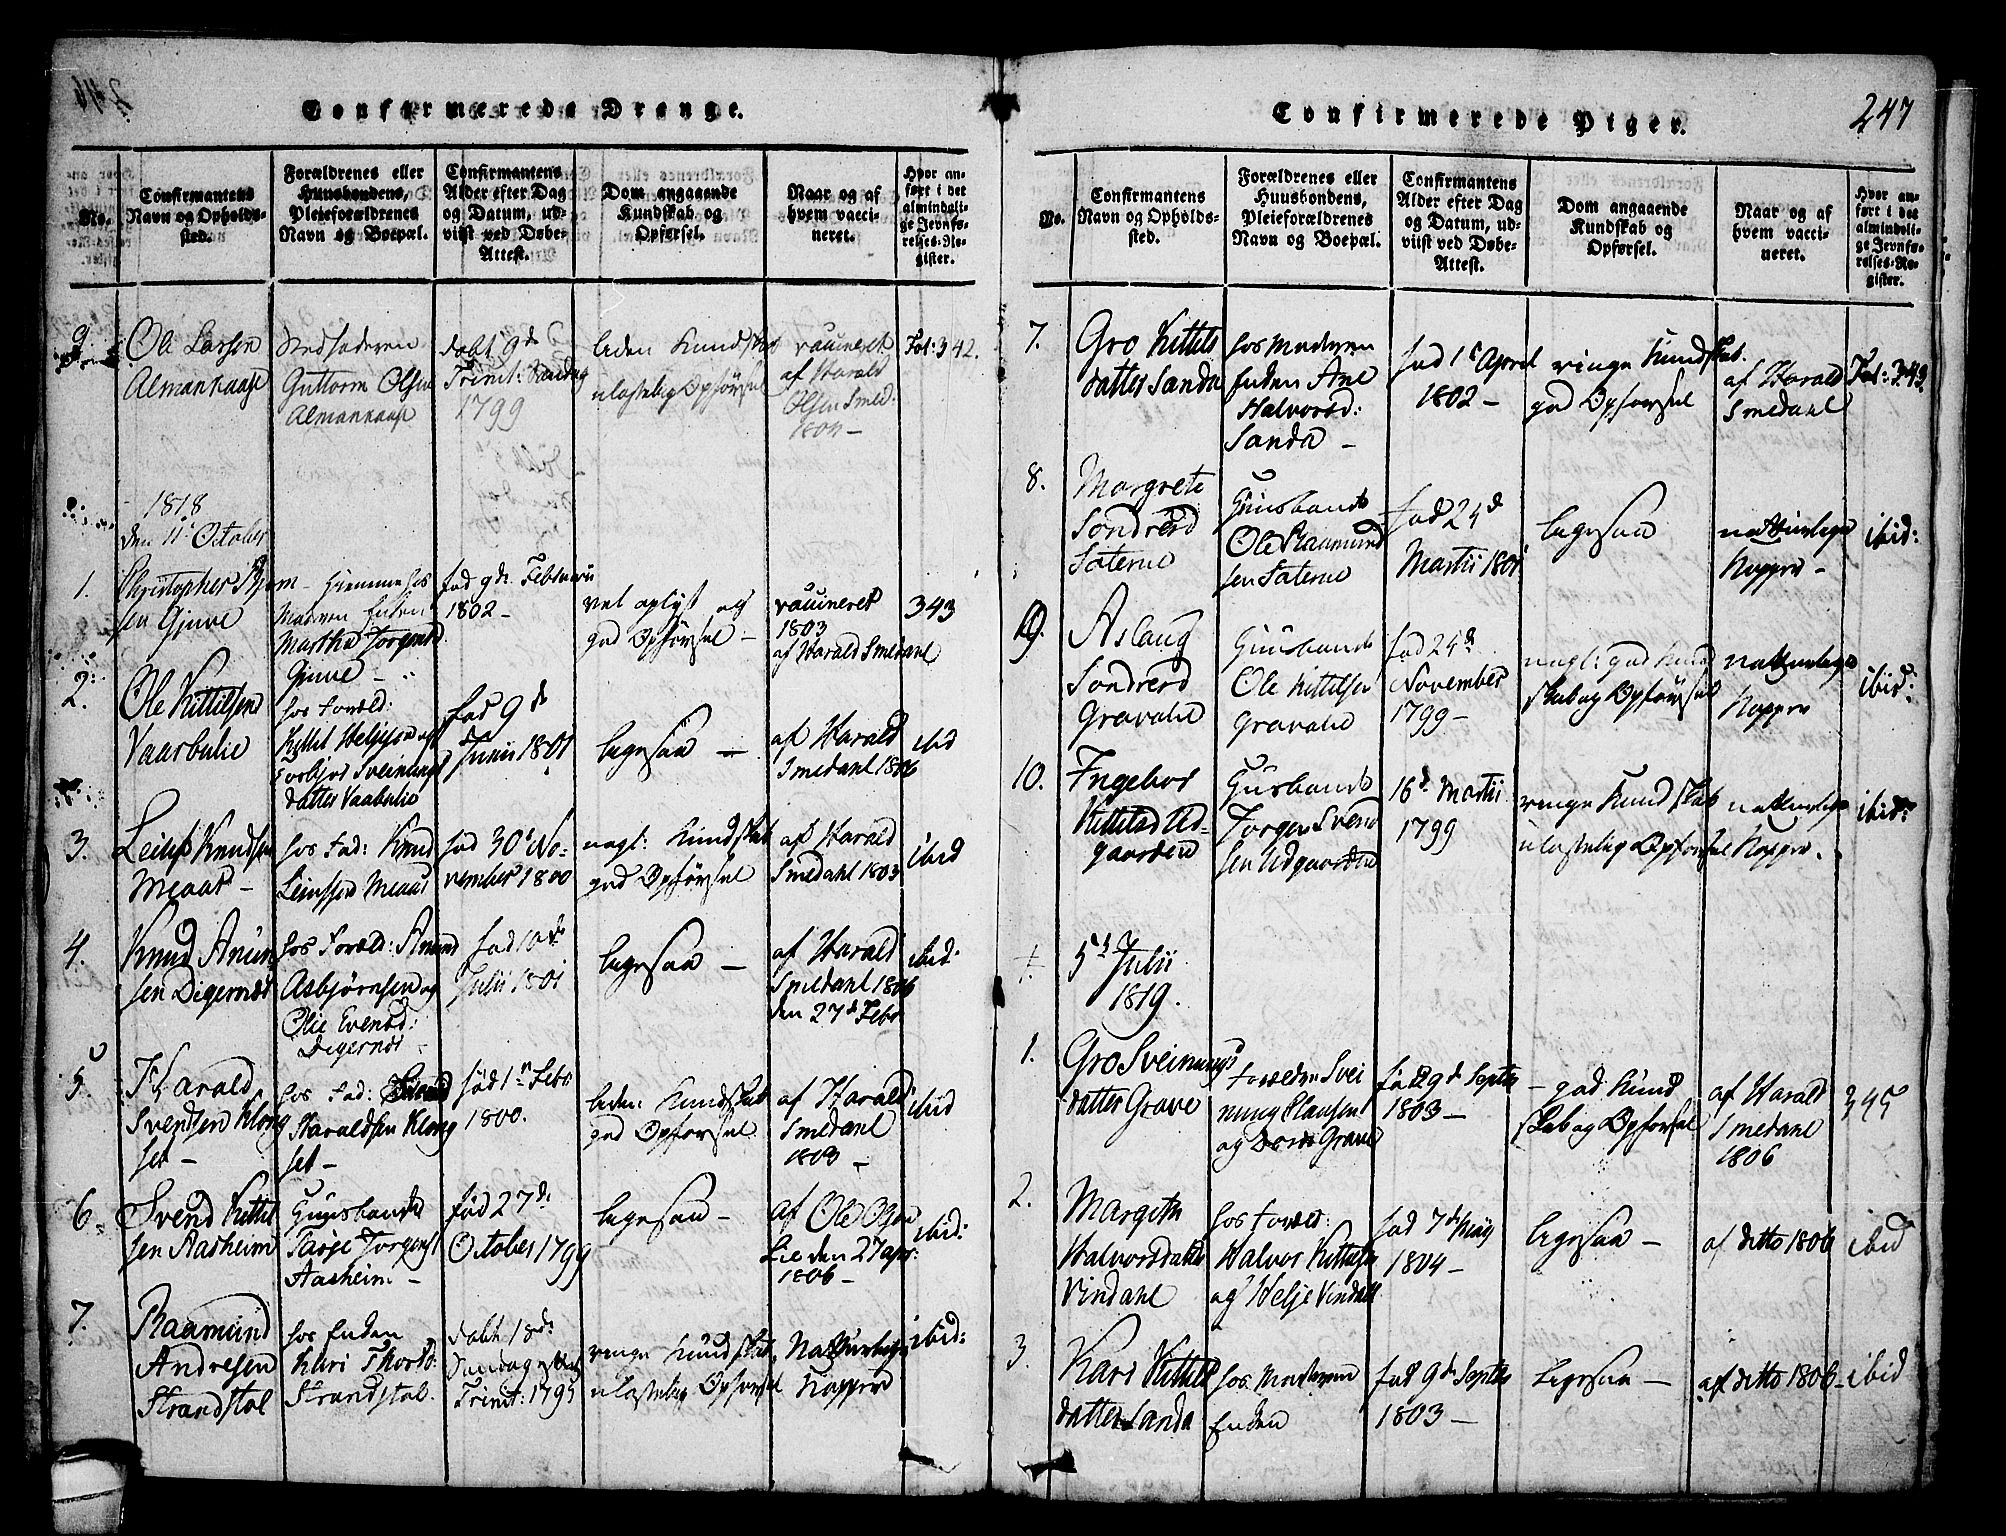 Confirmerede Drenge.
No.
Confirmantens
Navn og Opholds-
sted.
Forældrenes eller
Huusbondens,
Pleieforældrenes
Navn og Boepæl.
Confirmantens
Alder efter Dag
og Datum, ud-
viist ved Døbe-
Attest.
Dom angaaende
Kundskab og
Opførsel.
Naar og af
hvem vacci-
neret.
Hvor an-
ført i det
almindeli-
ge Jevnfø-
relses-Re-
gister.
9
Ole Larsen
Almankaase
Stedfaderen
Guttorm Olsen
Almankaase
døbt 9de
Trinit: Søndag
1799
liden Kundskab
ulastelig Opførsel
vaccineret
af Harald
Olsen Smed:
Fol: 342.
1818
den 11te October
1.
Christopher
sen Gjuve
Hiemme hos
Moderen Enken
Martha Jorgensd
Gjuve
fød 9de Februarii
1802
vel oplyst og
god Opførsel
vaccineret
1803
af Harald Smedahl
343
2.
Ole Kittilsen
Vaarbulie
hos Foræld:
Kittil Helgesen og
Torbjør Sveinungs
datter Vaabulie
fød 9de
Junii 1801
ligesaa
af Harald
Smedahl 1806
ibid
3.
Leiuf Knudsen
Meaas
hos Fad: Knud
Leiufsen Meaas
fød 30te No-
vember 1800
nogl: Kundskab
god Opførsel
af Harald
Smedahl 1803
ibid
4.
Knud Anun
sen Digernæs
hos Foræld: Anund
Asbjørnsen og
Olie Evensd:
Digernæs
fød 10de
Julii 1801
ligesaa
af Harald
Smedahl 1806
den 27de Febr
ibid:
5
Harald
Svendsen Klong
set
hos Fad: Svend
Haraldsen Klong
set
fød 1te Febr
1800.
liden Kundskab
god Opførsel
af Harald
Smedahl
1803
ibid
6
Svend Kittil
sen Aasheim
Huusbonde
Tarje Jorgens
Aasheim
fød 27de
October 1799
ligesaa
af Ole Olsen
Lie den 27 apr:
1806
ibid:
7.
Raamund
Andresen
Strandstøl
hos Enken
Kari Thorsd:
Strandstøl.
døbt 18de
Søndag efter
Trinit: 1795
ringe Kundskab
ulastelig Opførsel
Naturlige
Kopper
ibid:
Confirmerede Piger.
247
No.
Confirmantens
Navn og Opholds-
sted.
Forældrenes eller
Huusbondens,
Pleieforældrenes
Navn og Boepæl.
Confirmantens
Alder efter Dag
og Datum, ud-
viist ved Døbe-
Attest.
Dom angaaende
Kundskab og
Opførsel.
Naar og af
hvem vacci-
neret.
Hvor an-
ført i det
almindeli-
ge Jevnfø-
relses-Re-
gister.
7.
Gro Kittels
datter Sanda
hos Moderen
Enken Ane
Halvorsd:
Sanda
fød 1te April
1802
ringe Kundskab.
god Opførsel
af Harald
Smedahl
Fol: 343.
8.
Margrete
Sondresd
Saterne
Huusbonde
Ole Raamund
sen Saterne
fød 24de
Martii 1801
ligesaa
naturlige
Kopper
ibid:
9.
Aslaug
Sondresd
Gravalid
Huusbonde
Ole Kittilsen
Gravalid
fød 24de
November
1799
nogl: god Kund
skab og Opførsel
naturlige
Kopper
ibid:
10.
Ingebor
Kittilsd Ud-
gaarden
Huusbonde
Jorgen Svend
sen Udgaarden
16de Martii
1799
ringe Kundskab
ulastelig Opførsel
naturlige
Kopper.
ibid:
5te Julii
1819.
1.
Gro Sveinungs
datter Grave
Forældre Svei
nung Clausen
og Grave
fød 29de Septbr
1803
god Kund
skab og Opførsel
af Harald
Smedahl
1806
345
2.
Margith
Halvorsdatter
Vindahl
hos Foræld:
Halvor Kittilsen
og Helje Vindahl
fød 7de May
1804
ligesaa
af ditto 1806
ibid
3.
Kari Kittels
datter Sanda
hos Moderen
Enken
fød 9de Septbr
1803
Ligesaa
af ditto 1806
ibid